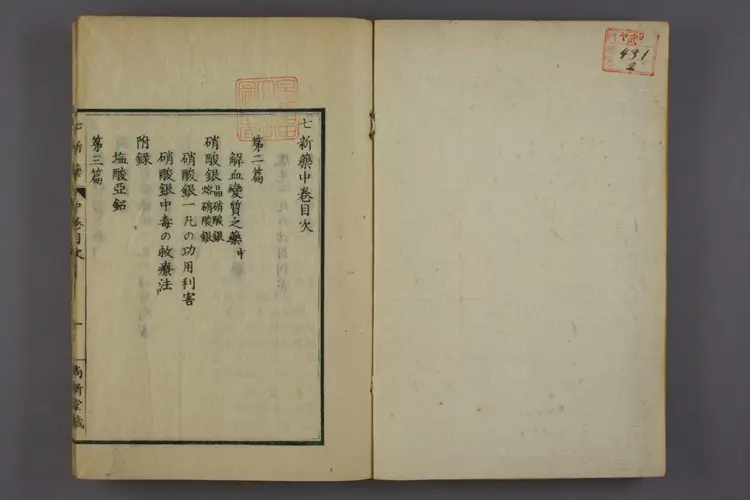 七新藥中卷目次
第二篇
解血變質之藥中
硝酸銀 晶硝酸銀 熔硝酸銀
硝酸銀一凡の功用利害
硝酸銀中毒の救療法
附錄
塩酸亞鉛
第三篇
七新藥 中卷目次 一 尚新堂藏
491
2